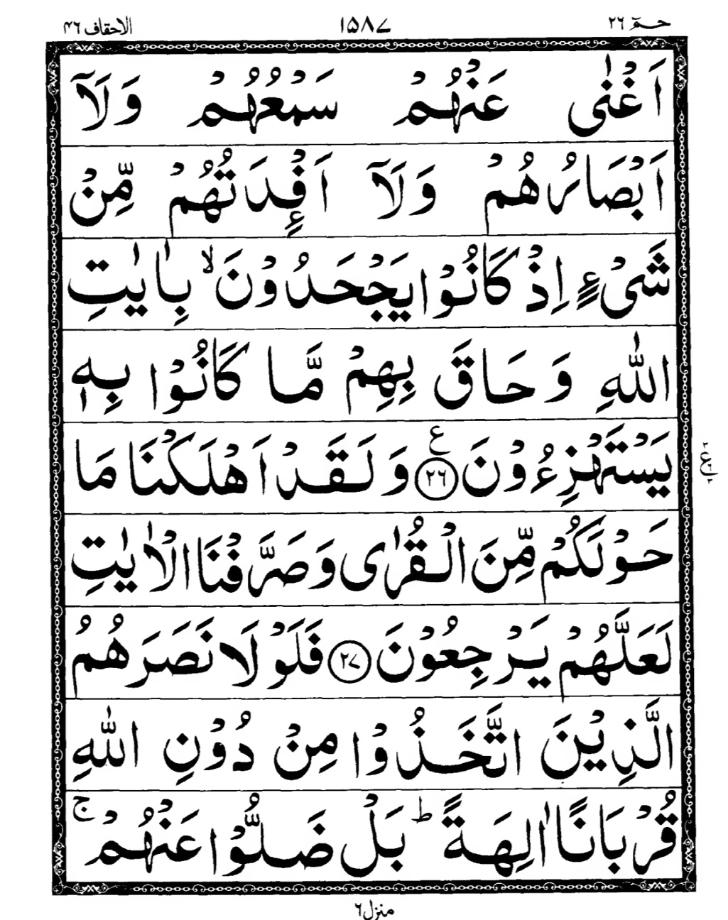 حٰمٓ ٢٦ ١٥٨٧ الاحقاف ٤٦
اَغْنٰى عَنْهُمْ سَمْعُهُمْ وَلَآ
اَبْصَارُهُمْ وَلَآ اَفْـِٕدَتُهُمْ مِّنْ
شَىْءٍ اِذْ كَانُوْا يَجْحَدُوْنَ ۙ بِاٰيٰتِ
اللّٰهِ وَحَاقَ بِهِمْ مَّا كَانُوْا بِهٖ
يَسْتَهْزِءُوْنَ ۧ ﴿٢٦﴾ وَلَقَدْ اَهْلَكْنَا مَا
حَوْلَكُمْ مِّنَ الْقُرٰى وَصَرَّفْنَا الْاٰيٰتِ
لَعَلَّهُمْ يَرْجِعُوْنَ ﴿٢٧﴾ فَلَوْلَا نَصَرَهُمُ
الَّذِيْنَ اتَّخَذُوْا مِنْ دُوْنِ اللّٰهِ
قُرْبَانًا اٰلِهَةً ؕ بَلْ ضَلُّوْا عَنْهُمْ ۚ
منزل ٦